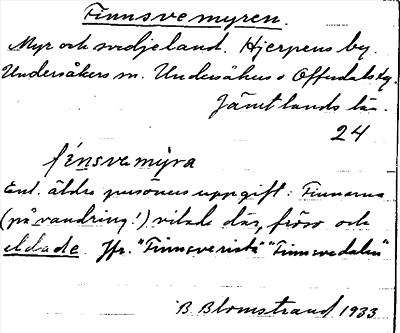 Finnsvemyren.
Myr och svedjeland. Hjerpens by.
Undersåkers sn. Undersåkers o Offerdals tg.
Jämtlands län.
24
fénsvemýra
Enl. äldre personers uppgift: Finnarna
(på vandring!) vilade där, fröso och
eldade. Jfr. "Finnsveristå" "Finnsvedalen"
B Blomstrand 1933